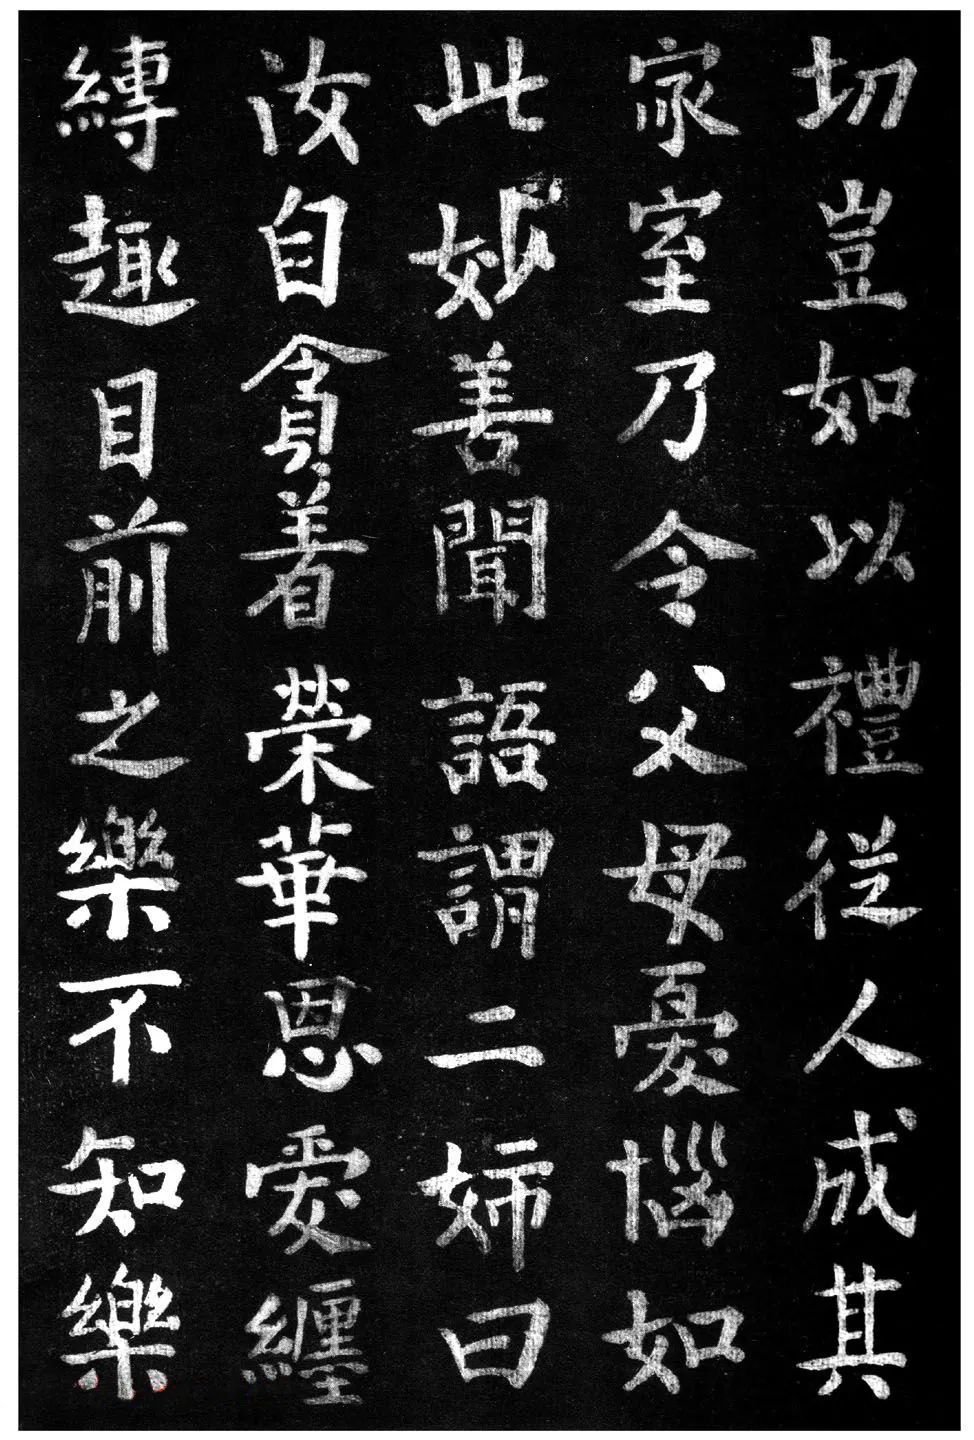 切豈如以禮從人成其
家室乃令父母憂惱如
此妙善聞語謂二姊曰
汝自貪着榮華恩愛纏
縛趣目前之樂不知樂